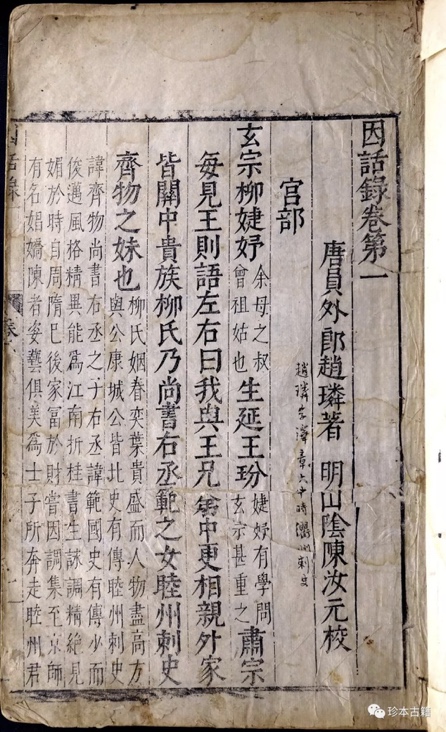 因話錄卷第一
唐員外郎趙璘著 明山陰陳汝元校
趙璘字澤章大中時衢州刺史
宮部
玄宗柳婕妤余母之叔曾祖姑也生延王玢婕妤有學問玄宗甚重之肅宗
每見王則語左右曰我與王兄弟中更相親外家
皆關中貴族柳氏乃尚書右丞範之女睦州刺史
齊物之妹也柳氏姻眷奕葉貴盛而人物盡高方
輿公康城公皆北史有傳睦州刺史
諱齊物尚書右丞之子右丞諱範國史有傳少而
俊邁風格精異能爲江南折桂書生詠調精絶見
媚於時自周隋已後家富於財嘗因調集至京師
有名娼嬌陳者姿藝俱美爲士子所奔走睦州君
珍本古籍